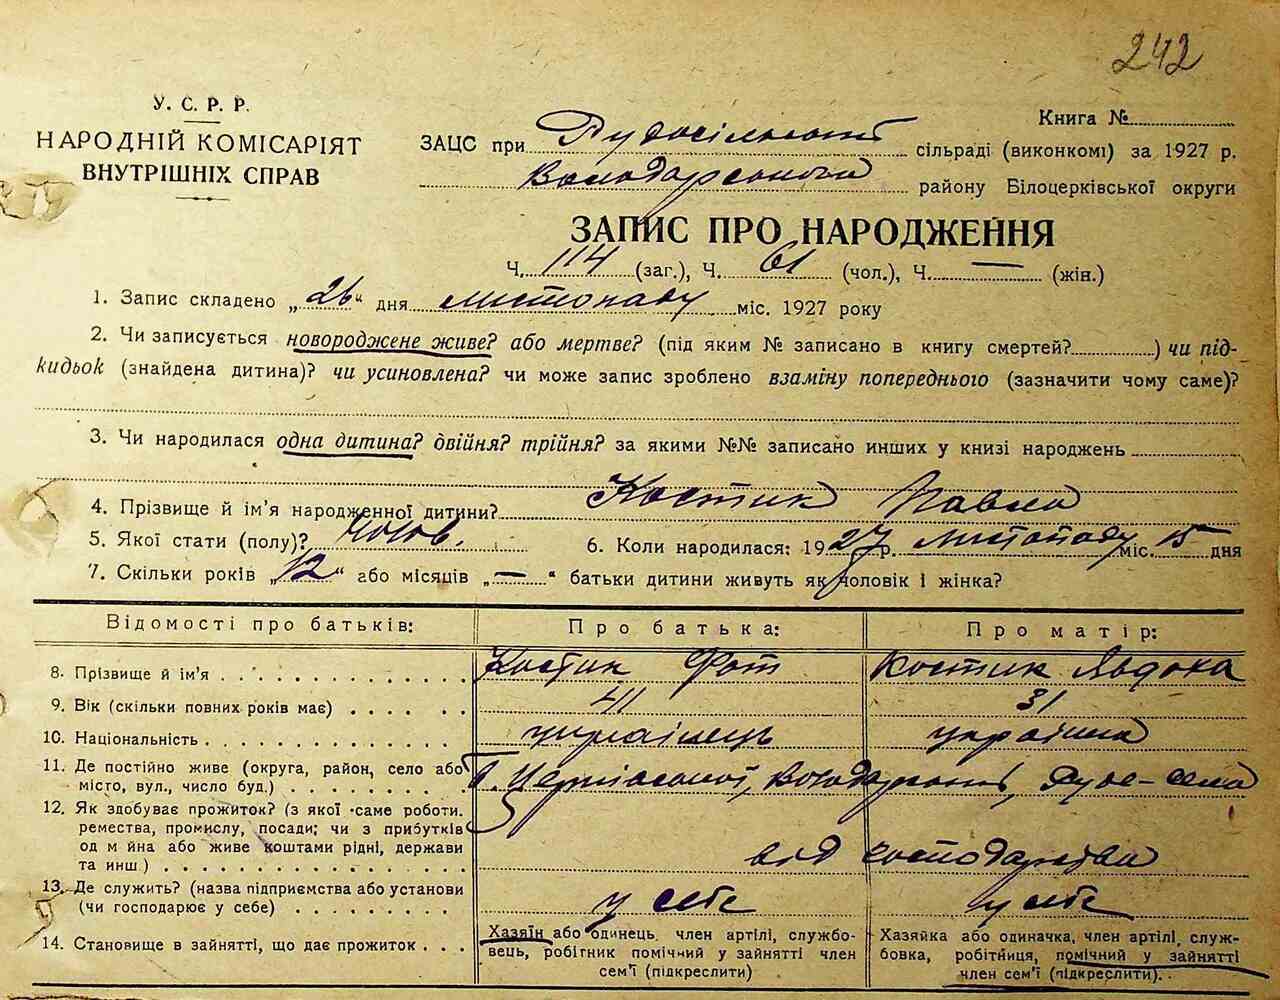 242
У. С. Р. Р.
НАРОДНІЙ КОМІСАРІЯТ
ВНУТРІШНІХ СПРАВ
Книга №
ЗАЦС при Рудосільській сільраді (виконкомі) за 1927 р.
Володарського району Білоцерківської округи
ЗАПИС ПРО НАРОДЖЕННЯ
Ч. 114 (заг.), Ч. 61 (чол.), Ч. — (жін.)
1. Запис складено „26“ дня листопаду міс. 1927 року
2. Чи записується новороджене живе? або мертве? (під яким № записано в книгу смертей? ) чи під-
кидьок (знайдена дитина)? чи усиновлена? чи може запис зроблено взаміну попереднього (зазначити чому саме)?
3. Чи народилася одна дитина? двійня? трійня? за якими №№ записано инших у книзі народжень
4. Прізвище й ім'я народженної дитини? Костик Павло
5. Якої стати (полу)? чолов. 6. Коли народилася: 1927 р. листопаду міс. 15 дня
7. Скільки років „12“ або місяців „—“ батьки дитини живуть як чоловік і жінка?
Відомості про батьків: Про батька: Про матір:
8. Прізвище й ім'я Костик Фот Костик Явдоха
9. Вік (скільки повних років має) 41 31
10. Національність українець українка
11. Де постійно живе (округа, район, село або
місто, вул., число буд.) Володарський, Руде-село
12. Як здобуває прожиток? (з якої саме роботи.
ремества, промислу, посади; чи з прибутків
од м йна або живе коштами рідні, держави
та инш) від господарства
13. Де служить? (назва підприємства або установи
(чи господарює у себе) у себе у себе
14. Становище в зайнятті, що дає прожиток
Хазяїн або одинець, член артілі, службо-
вець, робітник помічний у зайнятті член
сем'ї (підкреслити)
Хазяйка або одиначка, член артілі, служ-
бовка, робітниця, помічний у зайнятті
член сем'ї (підкреслити).